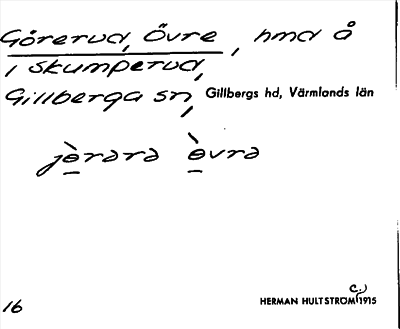 Gårerud, Övre, hmd å
i Skumperud,
Gillberga sn, Gillbergs hd, Värmlands län
jèrərə èvrə
16 HERMAN HULTSTRÖM c.) 1915